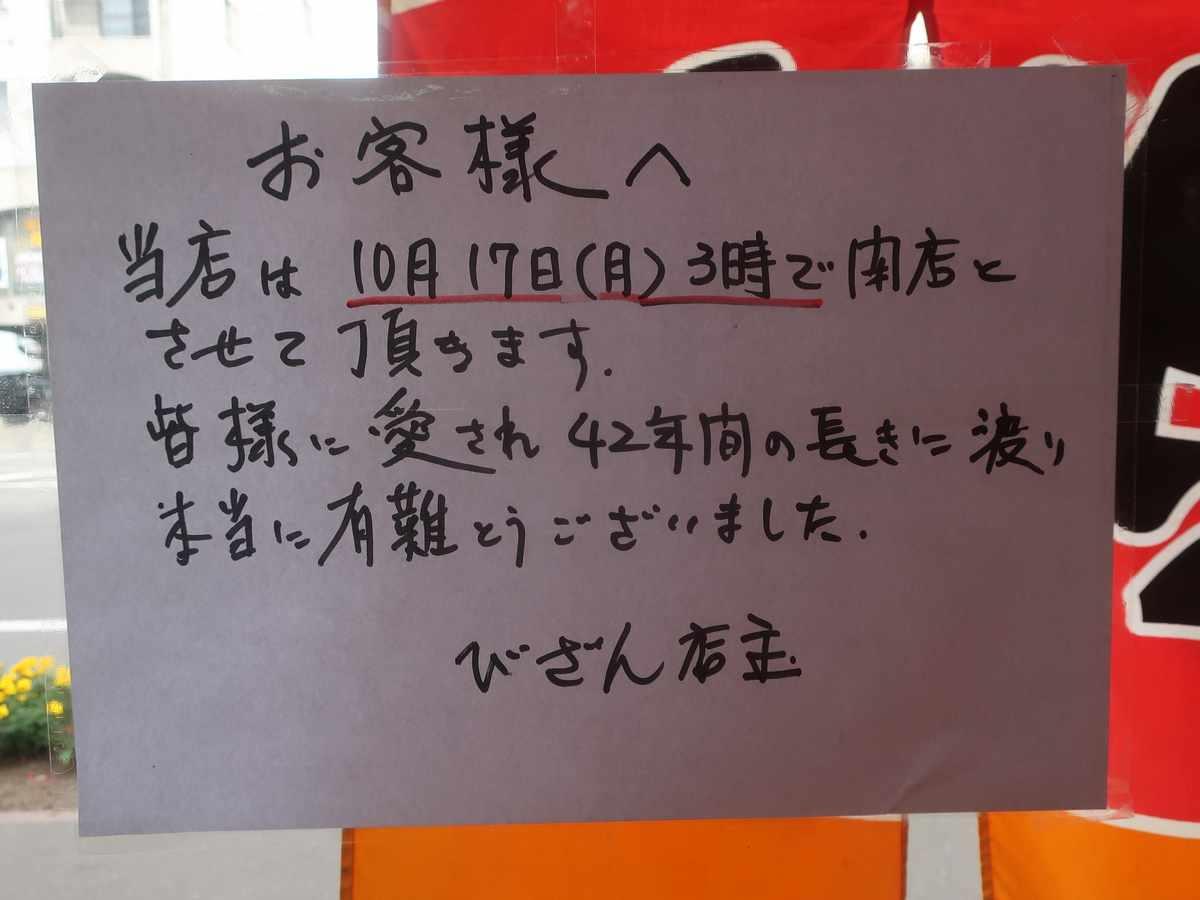 お客様へ
当店は 10月17日(月)3時で閉店と
させて頂きます.
皆様に愛され 42年間の長きに渡り
本当に有難とうございました.
びざん店主